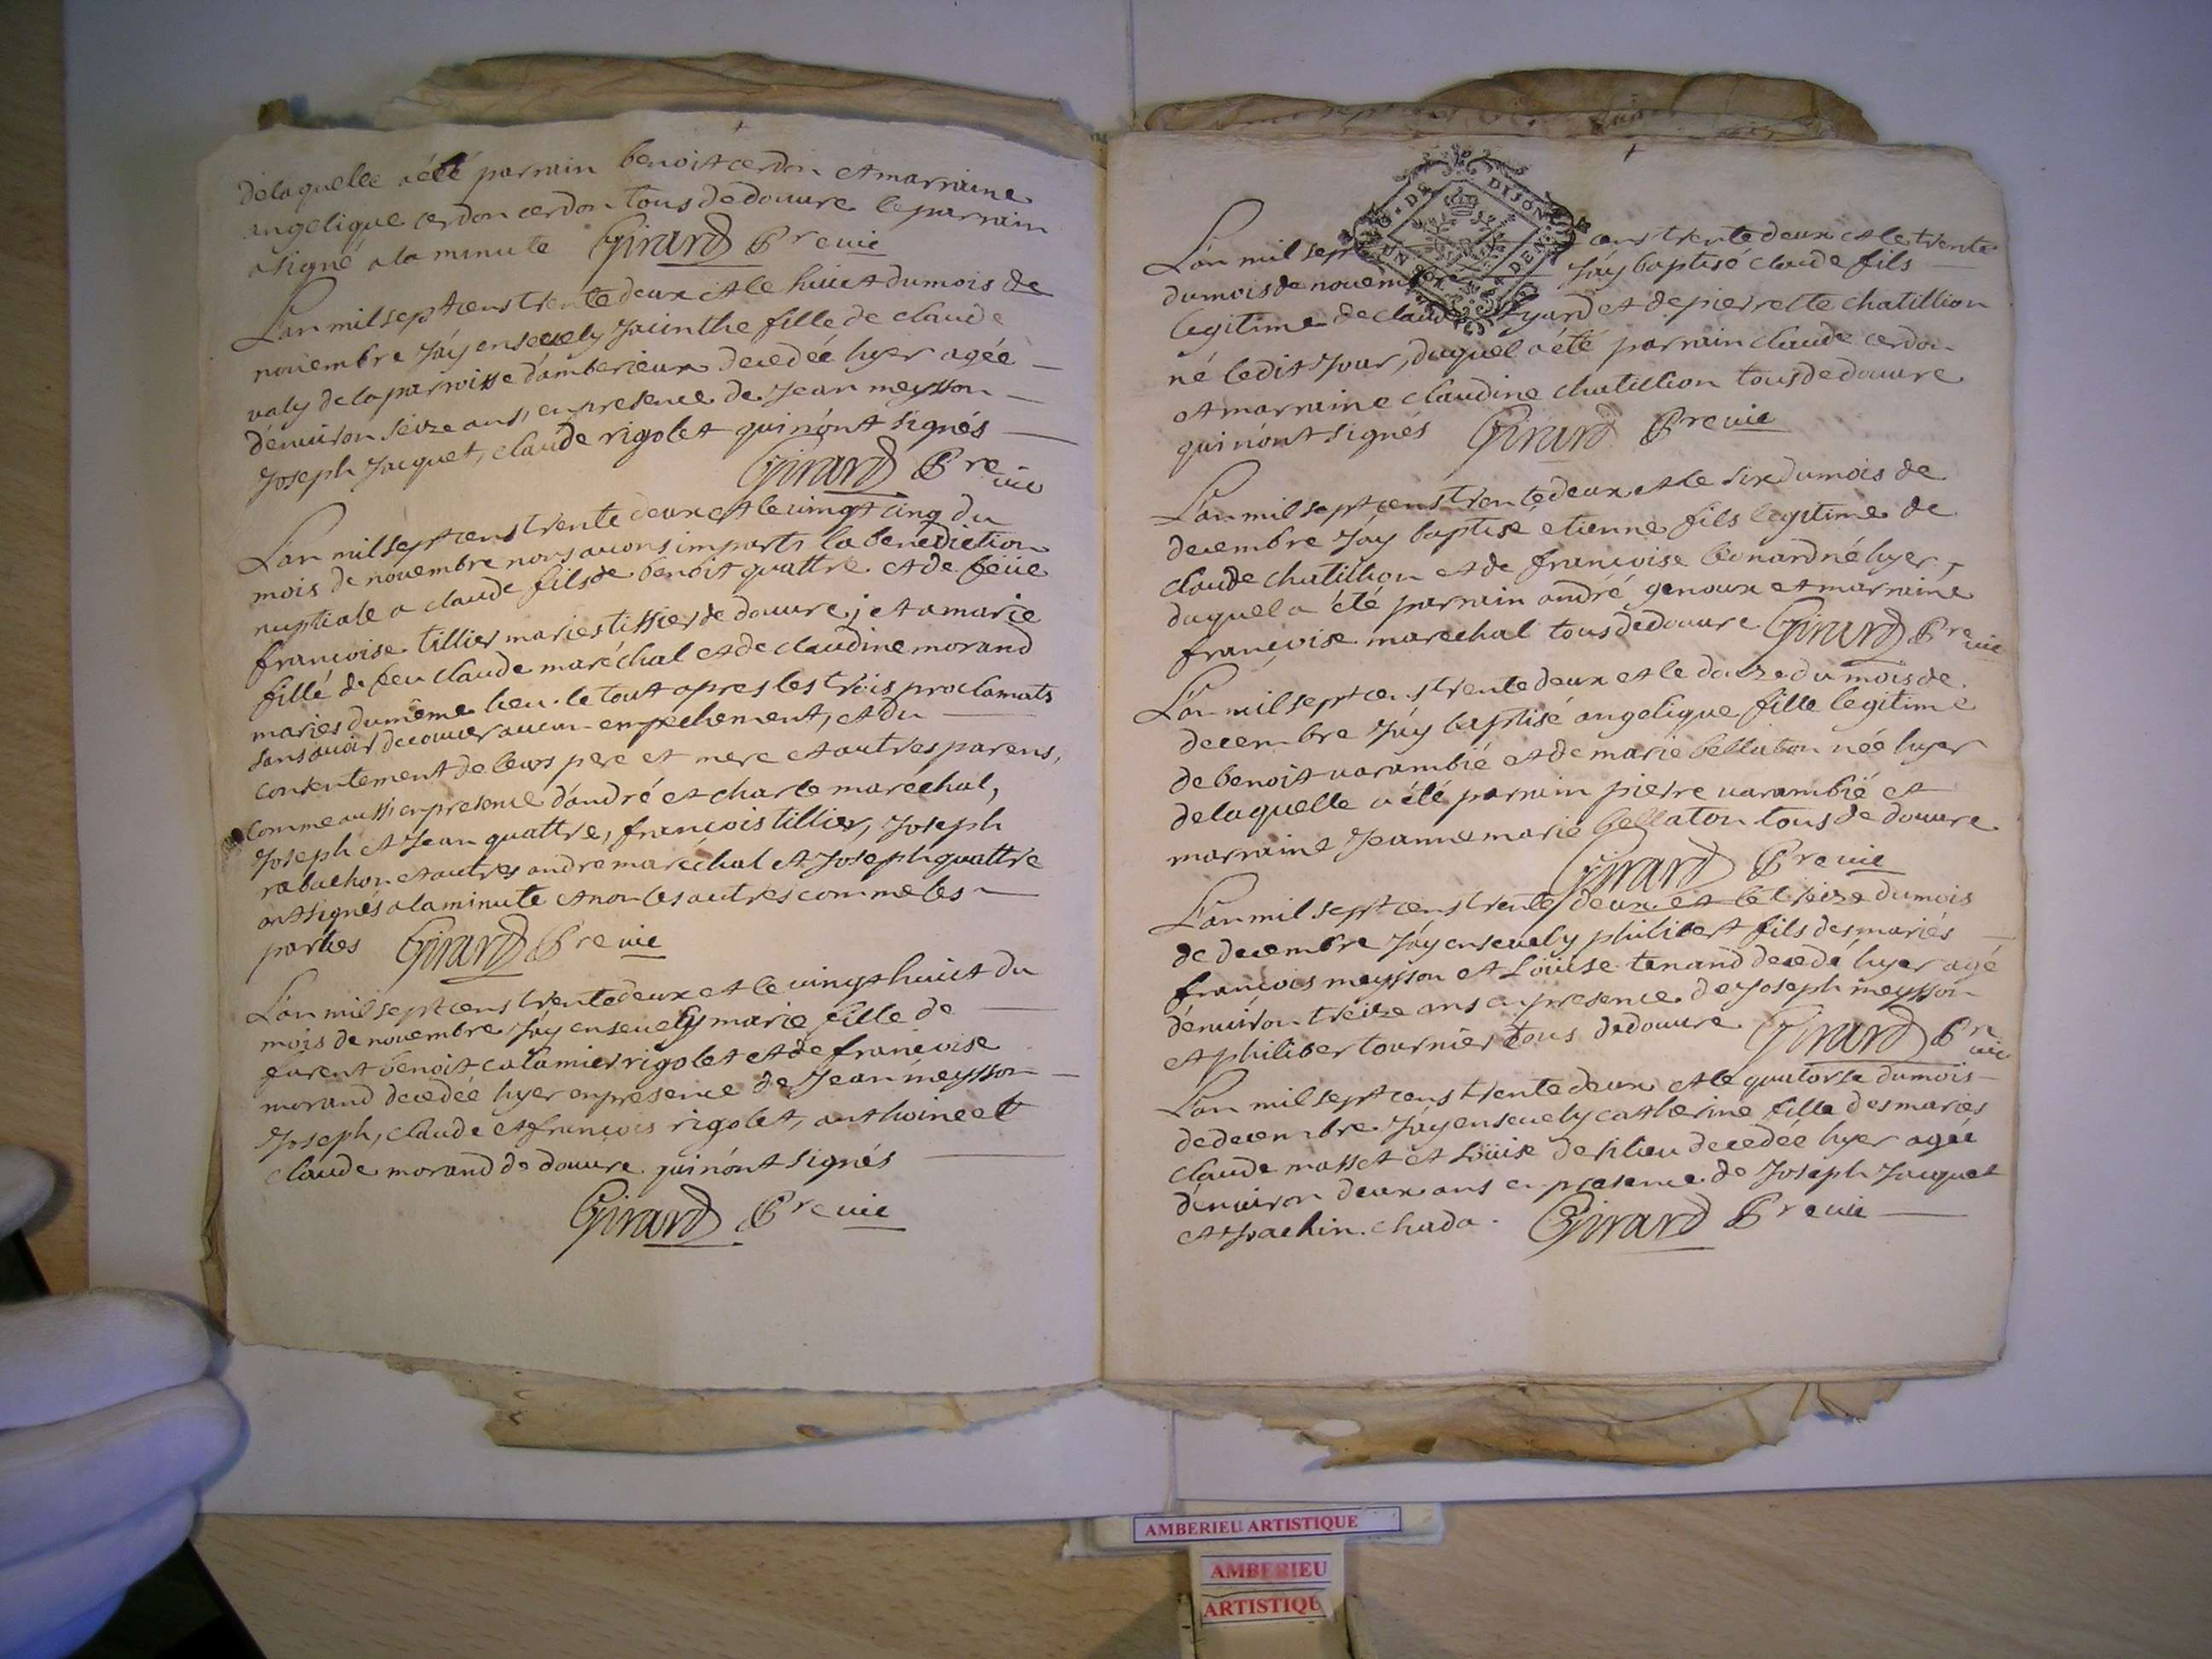 delaquelle a été parrain benoit cerdon et marraine
angelique cerdon cerdon tous de douure le parrain
a signé a la minute Girard Pre vic
L'an mil sept cens trente deux et le huict du mois de
nouembre J'ay enseuely Jacinthe fille de claude
valy de la parroisse d'amberieux decedée hyer agée
d'enuiron seize ans, en presence de Jean meysson
Joseph Jacquet, claude rigolet qui n'ont signés
Girard Pre vic
L'an mil sept cens trente deux et le vingt cinq du
mois de nouembre nous auons imparti la benediction
nuptiale a claude fils de benoit quattre et de feüe
françoise tillier maries tissier de douure; et a marie
fille de feu claude maréchal et de claudine morand
maries du même lieu. le tout apres les trois proclamats
sans auoir decouuer aucun empechement, et du
consentement de leurs pere et mere et autres parens,
comme aussi en presence d'andré et charle maréchal,
Joseph et Jean quattre, françois tillier, Joseph
rabuchon et autres andre maréchal et Joseph quattre
ont signés a la minute et non les autres comme les
parties Girard Pre vic
L'an mil sept cens trente deux et le vingt huict du
mois de nouembre J'ay enseuely marie fille de
furent benoit calamier rigolet et de françoise
morand decedée hyer en presence de Jean meysson
Joseph, claude et françois rigolet, anthoine et
claude morand de douure qui n'ont signés
Girard Pre vic
DE DIJON
L'an mil sept cens trente deux et le trente
du mois de nouembre J'ay baptisé claude fils
legitime de claude yard et de pierrette chatillion
né ledit Jour, duquel a été parrain claude cerdon
et marraine claudine chatillion tous de douure
qui n'ont signés Girard Pre vic
L'an mil sept cens trente deux et le six du mois de
decembre J'ay baptisé etienne fils legitime de
claude chatillion et de françoise léonard né hyer,
duquel a été parrain andré genoux et marraine
françoise marechal tous de douure Girard Pre vic
L'an mil sept cens trente deux et le douze du mois de
decembre J'ay baptisé angelique fille legitime
de benoit varambié et de marie bellaton née hyer
de laquelle a été parrain pierre varambié et
marraine Jeanne marie bellaton tous de douure
Girard Pre vic
L'an mil sept cens trente deux et le treize du mois
de decembre J'ay enseuely philibert fils des mariés
françois meysson et Loüise tenand decedé hyer agé
d'enuiron treize ans en presence de Joseph meysson
et philiber tournier tous de douure Girard Pre vic
L'an mil sept cens trente deux et le quatorse du mois
de decembre J'ay enseuely catherine fille des maries
claude masset et Loüise desilieu decedée hyer agée
d'enuiron deux ans en presence de Joseph Jacquet
et Joachin chuda. Girard Pre vic
AMBERIEU ARTISTIQUE
AMBERIEU
ARTISTIQU